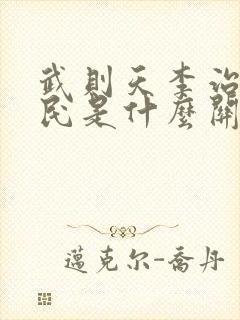 武則天李治
民是什麼關
邁克尔-喬丹